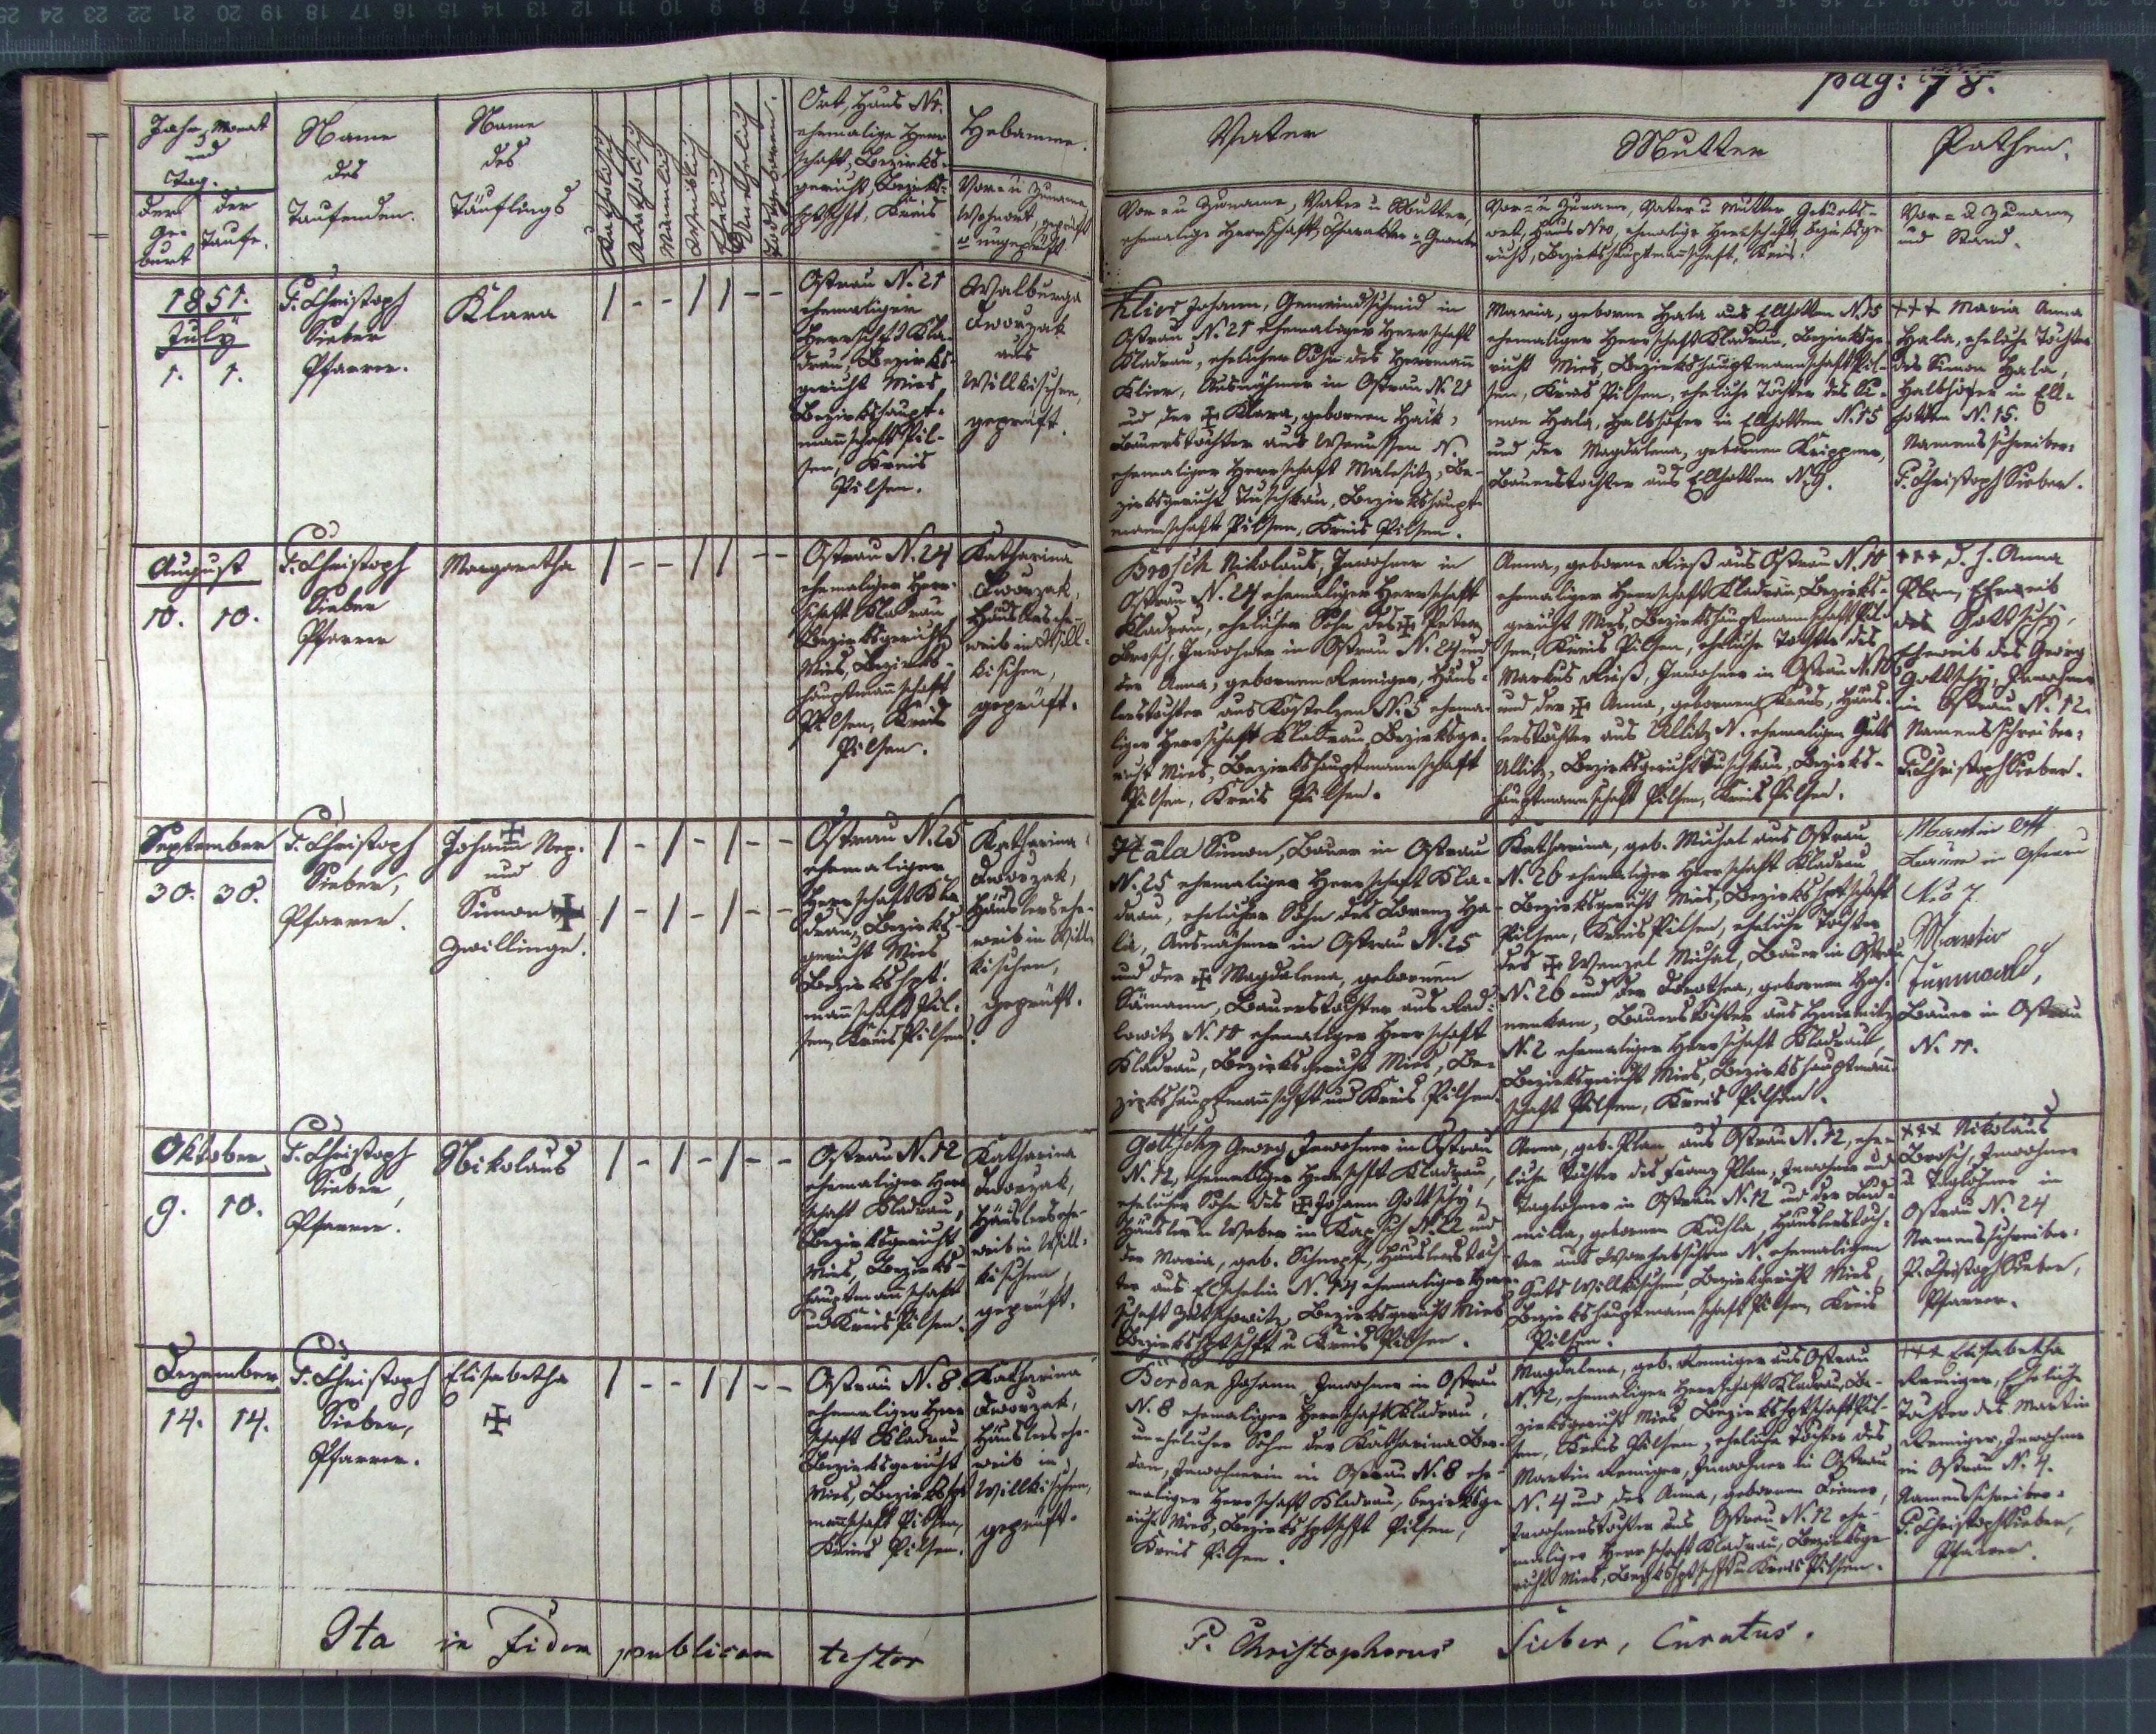 pag: 78.
Jahr, Monat
und
Tag.
der
Ge-
burt
der
Taufe.
Name
des
Taufenden.
Name
des
Täuflings
Katholisch
Akatholisch
Männlich
Weiblich
Ehelich
Unehelich
Todtgeboren.
Ort, Haus Nr.
ehemalige Herr
schaft, Bezirks-
gericht, Bezirks-
hptschft, Kreis
Hebamme.
Vor- u Zuname,
Wohnort, geprüft
o ungeprüft
Vater
Vor- u Zuname, Vater u Mutter,
ehemalige Herrschaft, Charakter u Gewerbe
Mutter
Vor- u Zuname, Vater u Mutter Geburts-
ort, Haus Nro, ehemalige Herrschaft, Bezirksge
richt, Bezirkshauptmannschaft, Kreis.
Pathen.
Vor- u Zuname,
und Stand.
1851.
July
1. 1.
P. Christoph
Sieber
Pfarrer.
Klara
1 - - 1 1 - -
Ostrau N. 21
ehemaliger
Herrschaft Kla-
drau, Bezirks-
gericht Mies
Bezirkshaupt-
mannschaft Pil-
sen, Kreis
Pilsen.
Walburga
Dworzak
aus
Willkischen,
geprüft.
Klier Johann, Gemeindschmid in
Ostrau N. 21 ehemaliger Herrschaft
Kladrau, ehelicher Sohn des Hermann
Klier, Ausnahmer in Ostrau N. 21
und der ✠ Klara, gebornen Haik,
Bauerstochter aus Wenussen N.
ehemaliger Herrschaft Malesitz, Be-
zirksgericht Tuschkau, Bezirkshaupt-
mannschaft Pilsen, Kreis Pilsen.
Maria, geborne Hala aus Ellhotten N. 15
ehemaliger Herrschaft Kladrau, Bezirksge-
richt Mies, Bezirkshauptmannschaft Pil-
sen, Kreis Pilsen, eheliche Tochter des Si-
mon Hala, Halbhöfer in Ellhotten N. 15
und der Magdalena, gebornen Krippner,
Bauerstochter aus Ellhotten N. 9.
+++ Maria Anna
Hala, eheliche Tochter
des Simon Hala,
Halbhöfer in Ell-
hotten N. 15.
Namensschreiber:
P. Christoph Sieber.
August
10. 10.
P. Christoph
Sieber
Pfarrer
Margaretha
1 - - 1 1 - -
Ostrau N. 24
ehemaliger Herr-
schaft Kladrau
Bezirksgericht
Mies, Bezirks-
hauptmannschaft
Pilsen, Kreis
Pilsen.
Katharina
Dworzak,
Häuslersehe-
weib in Will-
kischen,
geprüft.
Brosch Nikolaus, Inwohner in
Ostrau N. 24 ehemaliger Herrschaft
Kladrau, ehelicher Sohn des ✠ Peter
Brosch, Inwohner in Ostrau N. 24 und
der Anna, gebornen Remiger, Häus-
lerstochter aus Kostelzen N. 5 ehema-
liger Herrschaft Kladrau Bezirksge-
richt Mies, Bezirkshauptmannschaft
Pilsen, Kreis Pilsen.
Anna, geborne Rieß aus Ostrau N. 10
ehemaliger Herrschaft Kladrau, Bezirks-
gericht Mies, Bezirkshauptmannschaft Pil-
sen, Kreis Pilsen, eheliche Tochter des
Markus Rieß, Inwohner in Ostrau N. 10
und der ✠ Anna, gebornen Kraus, Häus-
lerstochter aus Ullitz N. ehemaligen Guts
Ullitz, Bezirksgericht Tuschkau, Bezirks-
hauptmannschaft Pilsen, Kreis Pilsen.
+++ Anna
Plan, Eheweib
des Gottschy,
Eheweib des Georg
Gottschy, Inwohner
in Ostrau N. 12.
Namensschreiber:
P. Christoph Sieber.
September
30. 30.
P. Christoph
Sieber,
Pfarrer.
Johann ✠ Nep.
und
Simon ✠
Zwillinge.
1 - 1 - 1 - -
1 - 1 - 1 - -
Ostrau N. 25
ehemaliger
Herrschaft Kla
drau, Bezirks-
gericht Mies
Bezirkshpt-
mannschaft Pil-
sen, Kreis Pilsen.
Katharina
Dworzak,
Häuslersehe-
weib in Will-
kischen,
geprüft.
Hala Simon, Bauer in Ostrau
N. 25 ehemaliger Herrschaft Kla-
drau, ehelicher Sohn des Lorenz Ha-
la, Ausnahmer in Ostrau N. 25
und der ✠ Magdalena, gebornen
Sämann, Bauerstochter aus Rad-
lowitz N. 10 ehemaliger Herrschaft
Kladrau, Bezirksgericht Mies, Be-
zirkshauptmannschft und Kreis Pilsen.
Katharina, geb. Michal aus Ostrau
N. 26 ehemaliger Herrschaft Kladrau
Bezirksgericht Mies, Bezirkshptschaft
Pilsen, Kreis Pilsen, eheliche Tochter
des ✠ Wenzel Michal, Bauer in Ostrau
N. 26 und der Dorothea, gebornen
Bauerstochter aus
N. 2 ehemaliger Herrschaft Kladrau,
Bezirksgericht Mies, Bezirkshauptmann-
schaft Pilsen, Kreis Pilsen.
Martin Ott
Bauer in Ostrau
No 7.
Martin
Turnwald,
Bauer in Ostrau
N. 11.
Oktober
9. 10.
P. Christoph
Sieber,
Pfarrer.
Nikolaus
1 - 1 - 1 - -
Ostrau N. 12
ehemaliger Herr
schaft Kladrau,
Bezirksgericht
Mies, Bezirks-
hauptmannschaft
und Kreis Pilsen.
Katharina
Dworzak,
Häuslersehe-
weib in Will-
kischen,
geprüft.
Gottschy Georg, Inwohner in Ostrau
N. 12, ehemaliger Herrschft Kladrau,
ehelicher Sohn des ✠ Johann Gottschy,
Häusler u Weber in Kapsch N. 22 und
der Maria, geb. Schnepf, Häuslerstoch
ter aus Elhschelin N. 14 ehemaliger Herr-
schaft Bezirksgericht Mies
Bezirkshptschft u Kreis Pilsen.
Anna, geb. Plan aus Ostrau N. 12, ehe-
liche Tochter des Franz Plan, Inwohner und
Taglöhner in Ostrau N. 12 und der Lud-
milla, gebornen Kuchla, Häuslerstoch-
ter aus Worhabschen N. ehemaligen
Guts Willkischen, Bezirksgericht Mies,
Bezirkshauptmannschaft Pilsen, Kreis
Pilsen.
+++ Nikolaus
Brosch, Inwohner
u Taglöhner in
Ostrau N. 24
Namensschreiber:
P. Christoph Sieber,
Pfarrer.
Dezember
14. 14.
P. Christoph
Sieber,
Pfarrer.
Elisabetha
✠
1 - - 1 1 - -
Ostrau N. 8.
ehemaliger Herr
schaft Kladrau
Bezirksgericht
Mies, Bezirkshpt
mannschaft Pilsen,
Kreis Pilsen.
Katharina
Dworzak,
Häuslersehe-
weib in
Willkischen,
geprüft.
Berdan Johann, Inwohner in Ostrau
N. 8 ehemaliger Herrschaft Kladrau,
unehelicher Sohn der Katharina Ber-
dan, Inwohnerin in Ostrau N. 8 ehe-
maliger Herrschaft Kladrau, Bezirksge
richt Mies, Bezirkshptschft Pilsen,
Kreis Pilsen.
Magdalena, geb. Remiger aus Ostrau
N. 12, ehemaliger Herrschaft Kladrau, Be-
zirksgericht Mies, Bezirkshptschaft Pil-
sen, Kreis Pilsen, eheliche Tochter des
Martin Remiger, Inwohner in Ostrau
N. 4 und der Anna, gebornen
Inwohnerstochter aus Ostrau N. 12 ehe-
maliger Herrschaft Kladrau, Bezirksge
richt Mies, Bezirkshptschft u Kreis Pilsen.
+++ Elisabetha
Remiger, Eheliche
Tochter des Martin
Remiger, Inwohner
in Ostrau N. 4.
Namensschreiber:
P. Christoph Sieber,
Pfarrer.
Ita in Fidem publicam testor
P. Christophorus Sieber, Curatus.